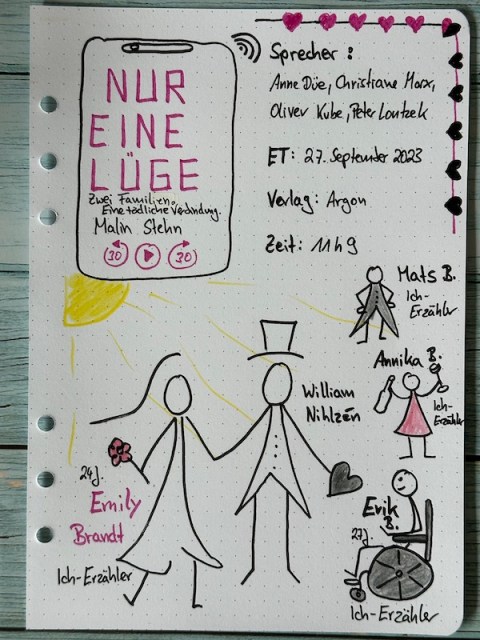 NUR
EINE
LÜGE
Zwei Familien.
Eine tödliche Verbindung.
Malin Stehn
30
30
Sprecher:
Anne Düe, Christiane Marx,
Oliver Kube, Peter Lontzek
ET: 27. September 2023
Verlag: Argon
Zeit: 11h 9
Mats B.
Ich-
Erzähler
Annika B.
Ich-
Erzähler
William
Nihlzén
24J.
Emily
Brandt
Ich-Erzähler
Erik
B.
27J.
Ich-Erzähler